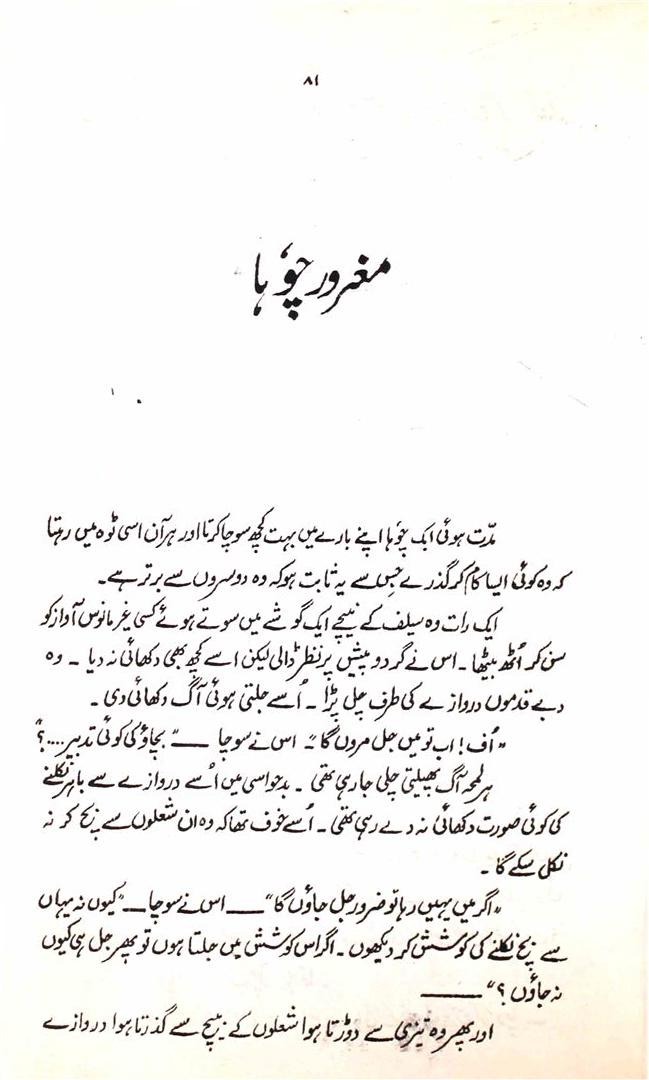 ۸۱
مغرور چوہا
مدّت ہوئی ایک چوہا اپنے بارے میں بہت کچھ سوچا کرتا اور ہر آن اسی ٹوہ میں رہتا
کہ وہ کوئی ایسا کام کر گذرے جس سے یہ ثابت ہو کہ وہ دوسروں سے برتر ہے۔
ایک رات وہ سیلف کے نیچے ایک گوشے میں سوتے ہوئے کسی غیر مانوس آواز کو
سن کر اُٹھ بیٹھا۔ اس نے گرد و پیش پر نظر ڈالی لیکن اسے کچھ بھی دکھائی نہ دیا۔ وہ
دبے قدموں دروازے کی طرف چل پڑا۔ اُسے جلتی ہوئی آگ دکھائی دی۔
”اُف! اب تو میں جل مروں گا“۔ اس نے سوچا ــــ ”بچاؤ کی کوئی تدبیر....؟“
ہر لمحہ آگ پھیلتی چلی جا رہی تھی۔ بدحواسی میں اُسے دروازے سے باہر نکلنے
کی کوئی صورت دکھائی نہ دے رہی تھی۔ اُسے خوف تھا کہ وہ ان شعلوں سے بچ کر نہ
نکل سکے گا۔
”اگر میں یہیں رہا تو ضرور جل جاؤں گا“ ــــ اس نے سوچا ــــ ”کیوں نہ یہاں
سے بچ نکلنے کی کوشش کر دیکھوں۔ اگر اس کوشش میں جلتا ہوں تو پھر جل ہی کیوں
نہ جاؤں؟“ ــــــــ
اور پھر وہ تیزی سے دوڑتا ہوا شعلوں کے بیچ سے گذرتا ہوا دروازے